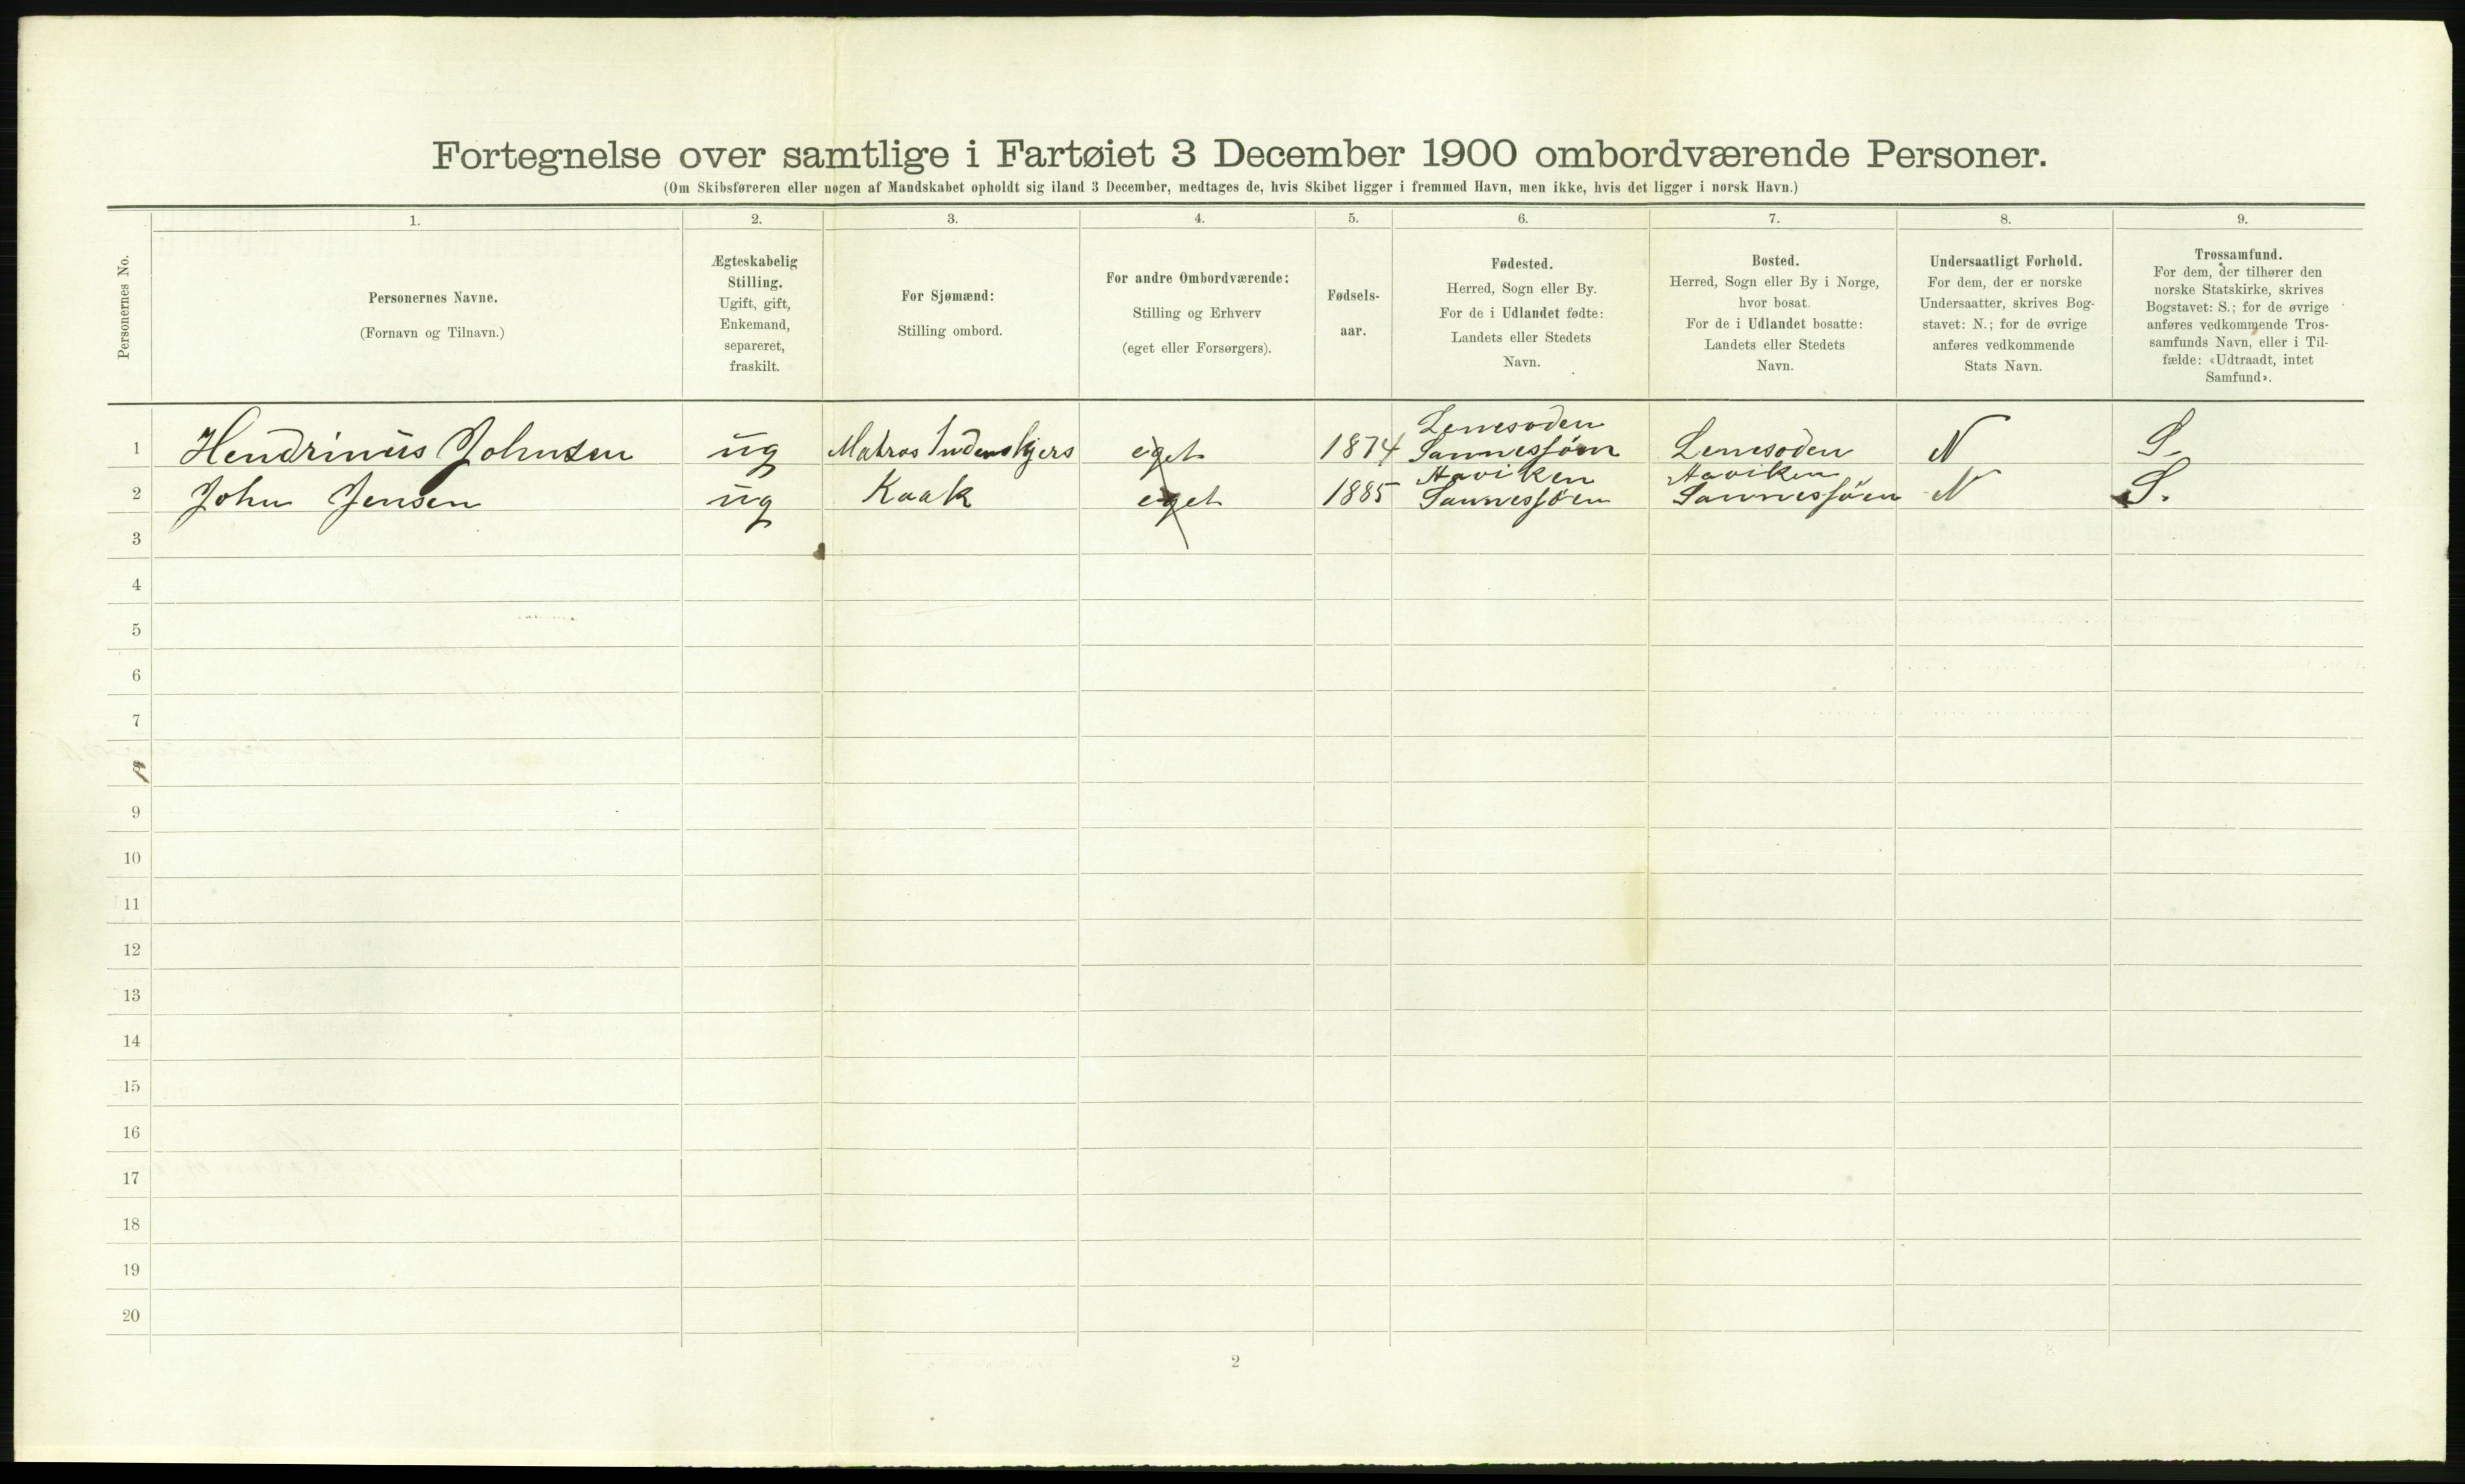 Fortegnelse over samtlige i Fartøiet 3 December 1900 ombordværende Personer.
(Om Skibsføreren eller nogen af Mandskabet opholdt sig iland 3 December, medtages de, hvis Skibet ligger i fremmed Havn, men ikke, hvis det ligger i norsk Havn.)
Personernes No.
1.
2.
3.
4.
5.
6.
7.
8.
9.
Personernes Navne.
(Fornavn og Tilnavn.)
Ægteskabelig
Stilling.
Ugift, gift,
Enkemand,
separeret,
fraskilt.
For Sjømænd:
Stilling ombord.
For andre Ombordværende:
Stilling og Erhverv
(eget eller Forsørgers).
Fødsels-
aar.
Fødested.
Herred, Sogn eller By.
For de i Udlandet fødte:
Landets eller Stedets
Navn.
Bosted.
Herred, Sogn eller By i Norge,
hvor bosat.
For de i Udlandet bosatte:
Landets eller Stedets
Navn.
Undersaatligt Forhold.
For dem, der er norske
Undersaatter, skrives Bog-
stavet: N.; for de øvrige
anføres vedkommende
Stats Navn.
Trossamfund.
For dem, der tilhører den
norske Statskirke, skrives
Bogstavet: S.; for de øvrige
anføres vedkommende Tros-
samfunds Navn, eller i Til-
fælde: «Udtraadt, intet
Samfund».
1 Hendrinus Johnsen ug Matros eget 1874 N S.
2 John Jensen ug Kaak eget 1885 N S.
3
4
5
6
7
9
10
11
12
13
14
15
16
17
18
19
20
2